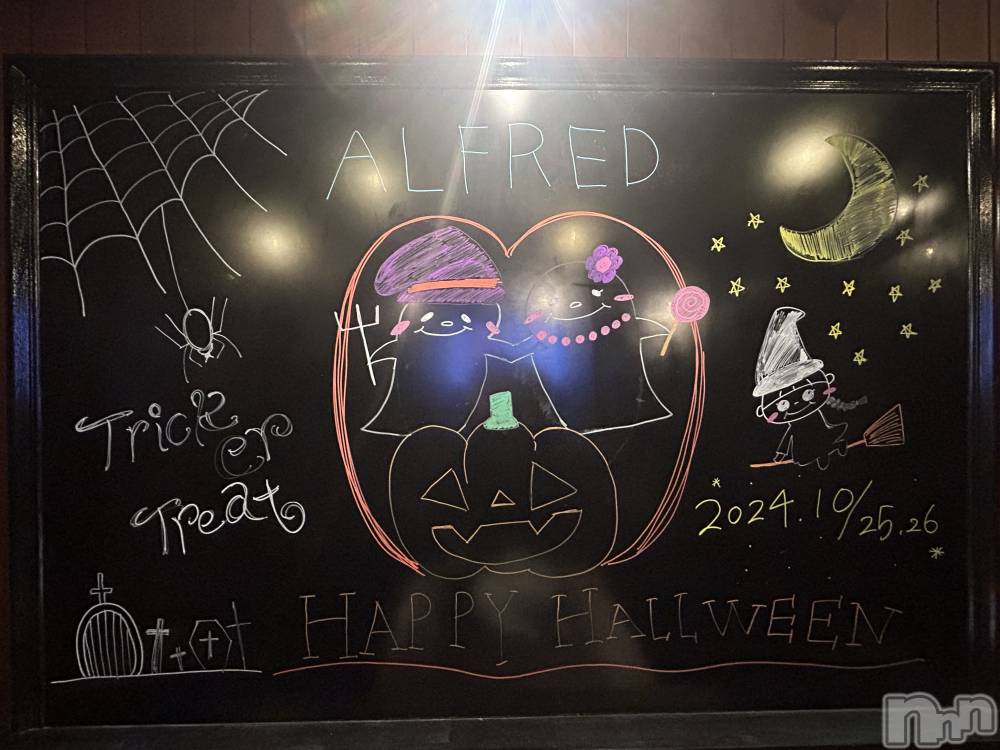 ALFRED
Trick
er
Treat
2024.10/25.26
HAPPY HALLWEEN
nnn